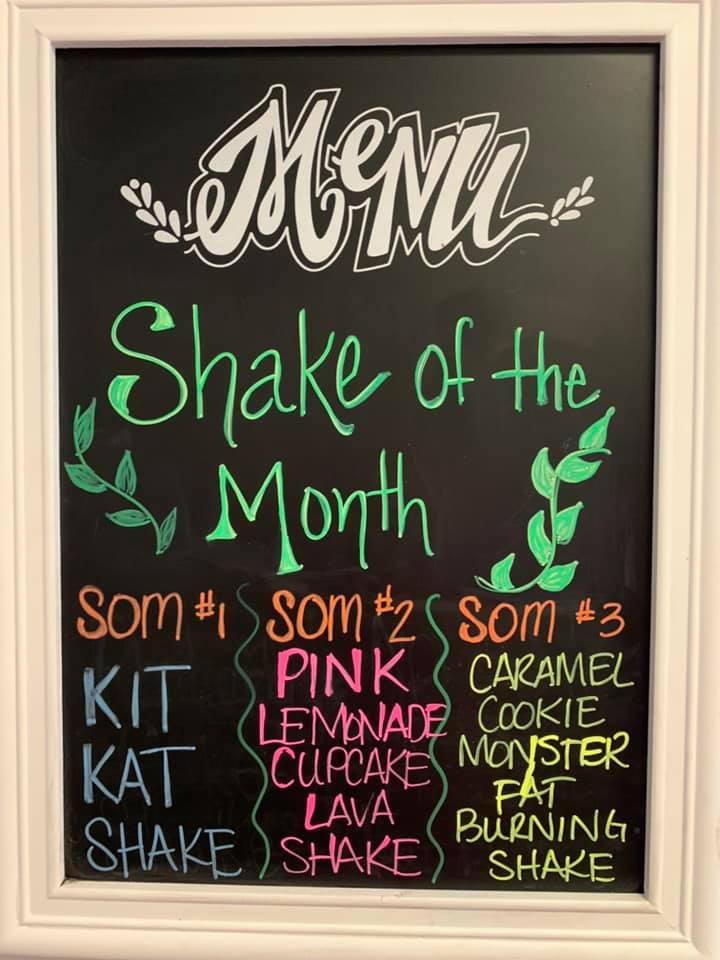 Menu
Shake of the
Month
SOM #1
KIT
KAT
SHAKE
SOM #2
PINK
LEMONADE
CUPCAKE
LAVA
SHAKE
SOM #3
CARAMEL
COOKIE
MONSTER
FAT
BURNING
SHAKE